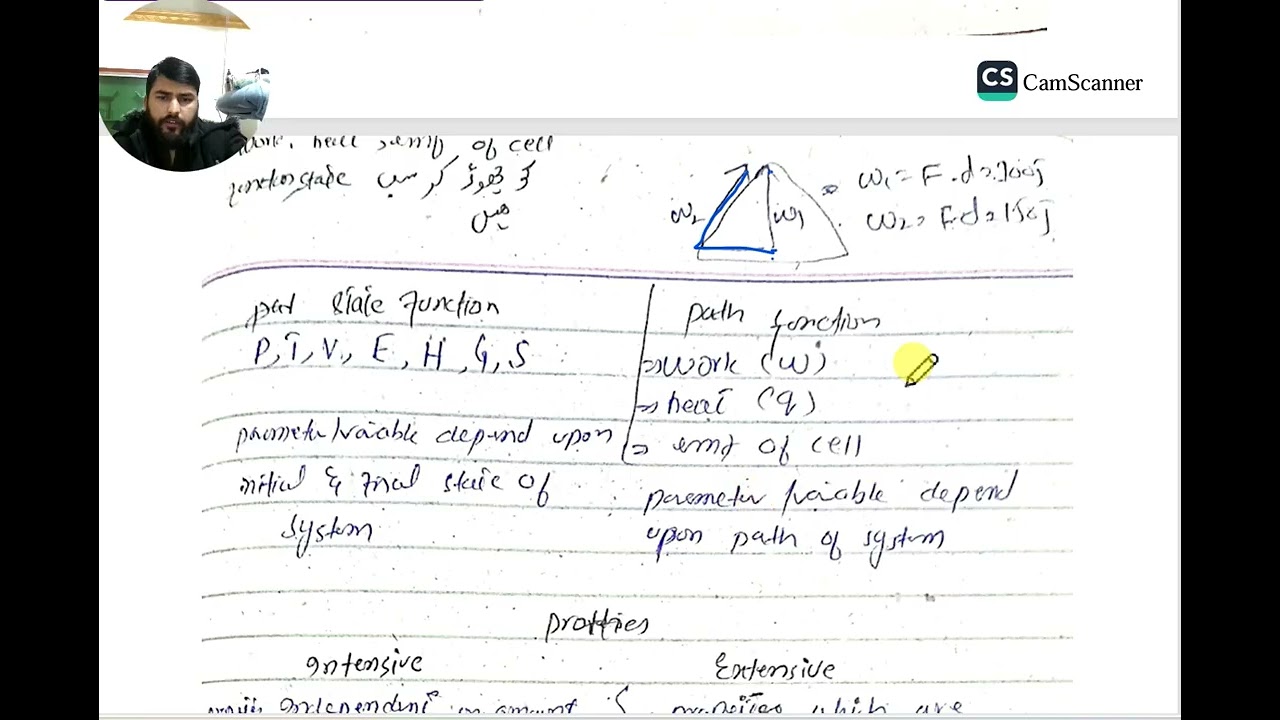 CS CamScanner
work, heat & emf of cell
کو چھوڑ کر سب
function state
ہیں
w₂
w₁
w₁ = F.d = 200J
w₂ = F.d = 150J
state function
P, T, V, E, H, G, S
parameter/variable depend upon
initial & final state of
system
path function
⇒ work (w)
⇒ heat (q)
⇒ emf of cell
parameter/variable depend
upon path of system
protties
Intensive
Extensive
independent amount
which are